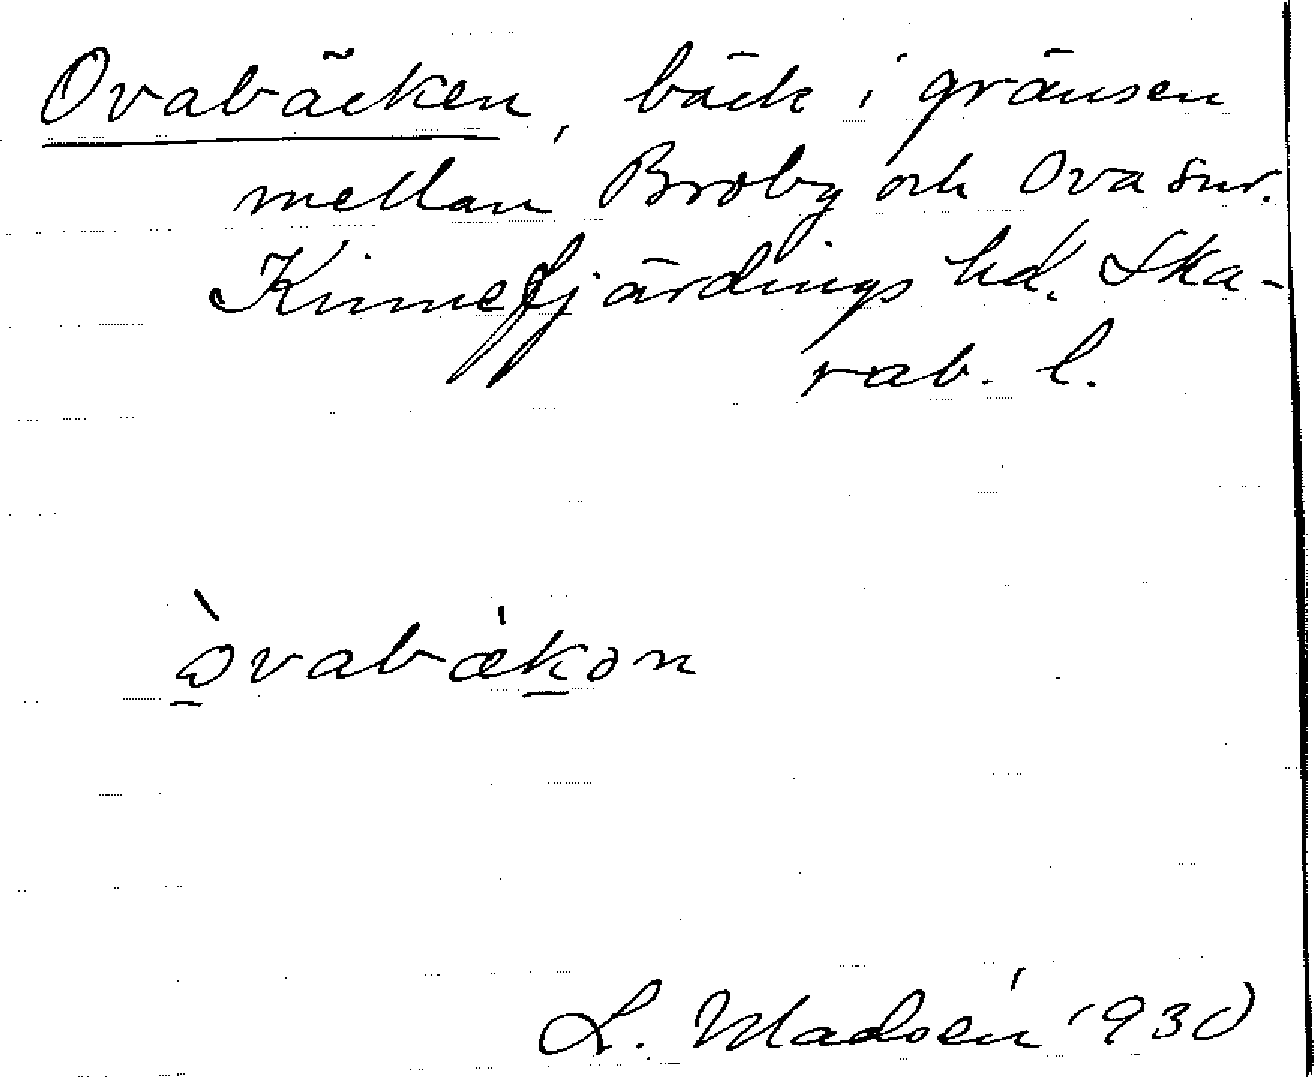 Ovabäcken, bäck i gränsen
mellan Broby och Ova snr.
Kinnefjärdings hd. Ska-
rab. l.
òvabækən
L. Madsén 1930